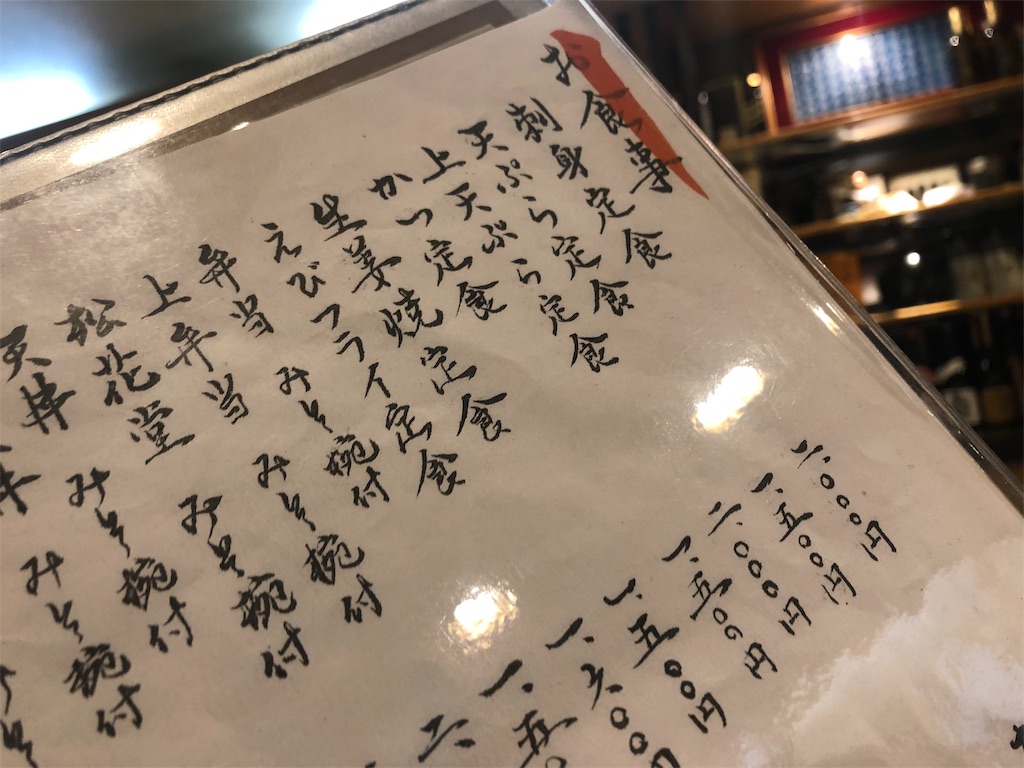 お食事
刺身定食 二、〇〇〇円
天ぷら定食 一、五〇〇円
上天ぷら定食 二、〇〇〇円
かつ定食 一、五〇〇円
生姜焼定食 一、五〇〇円
えびフライ定食 一、六〇〇円
弁当 みそ椀付 一、五〇
上弁当 みそ椀付 二、
松花堂 みそ椀付
天丼 みそ椀付
丼 みそ椀付
みそ